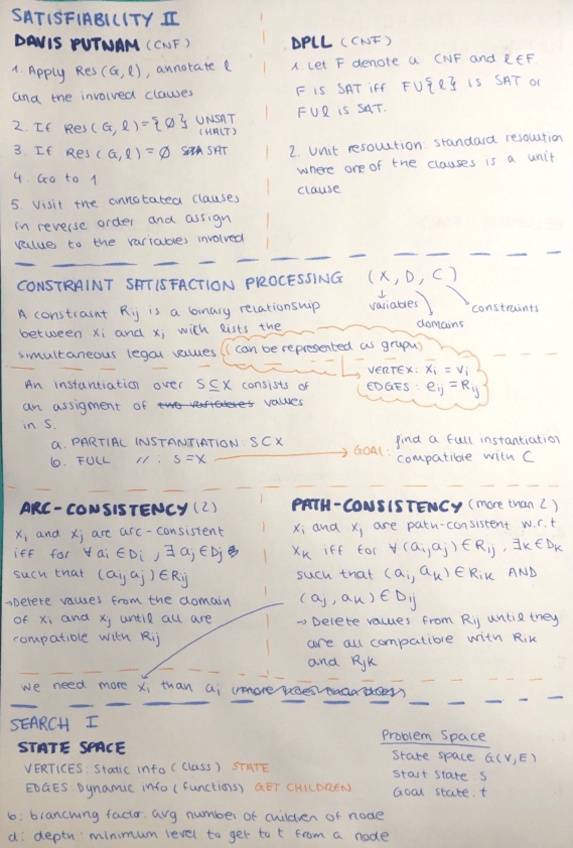 SATISFIABILITY II
DAVIS PUTNAM (CNF)
1. Apply Res(G,l), annotate l
and the involved clauses
2. If Res(G,l)={Ø} UNSAT
(HALT)
3. If Res(G,l)=Ø SAT
4. Go to 1
5. Visit the annotated clauses
in reverse order and assign
values to the variables involved
DPLL (CNF)
1. Let F denote a CNF and l∈F.
F is SAT iff FU{l} is SAT or
FUl is SAT.
2. Unit resolution: standard resolution
where one of the clauses is a unit
clause
CONSTRAINT SATISFACTION PROCESSING (X, D, C)
variables
domains
constraints
A constraint Rij is a binary relationship
between xi and xj with lists the
simultaneous legal values (can be represented as graph)
VERTEX: xi = vi
EDGES: eij = Rij
An instantiation over S⊆X consists of
an assigment of two variables values
in S.
a. PARTIAL INSTANTIATION: S⊂X
b. FULL //: S=X
GOAL: find a full instantiation
compatible with C
ARC-CONSISTENCY (2)
xi and xj are arc-consistent
iff for ∀ ai ∈ Di, ∃ aj ∈ Dj
such that (ai, aj) ∈ Rij
→ Delete values from the domain
of xi and xj until all are
compatible with Rij
PATH-CONSISTENCY (more than 2)
xi and xj are path-consistent w.r.t
xk iff for ∀(ai,aj) ∈ Rij, ∃k∈Dk
such that (ai, ak) ∈ Rik AND
(aj, ak) ∈ Dij
→ Delete values from Rij until they
are all compatible with Rik
and Rjk
we need more xi than aj
SEARCH I
STATE SPACE
VERTICES: Static info (class) STATE
EDGES: Dynamic info (functions) GET CHILDREN
b: branching factor: avg number of children of node
d: depth: minimum level to get to t from a node
Problem Space
State space G(V,E)
Start state s
Goal state: t